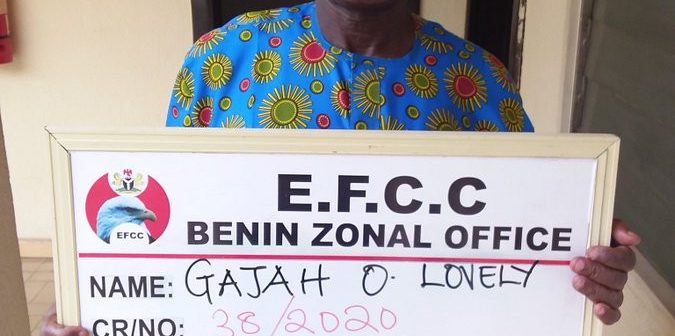 E.F.C.C
BENIN ZONAL OFFICE
EFCC
NAME: GAJAH O. LOVELY
CR/NO: 38/2020